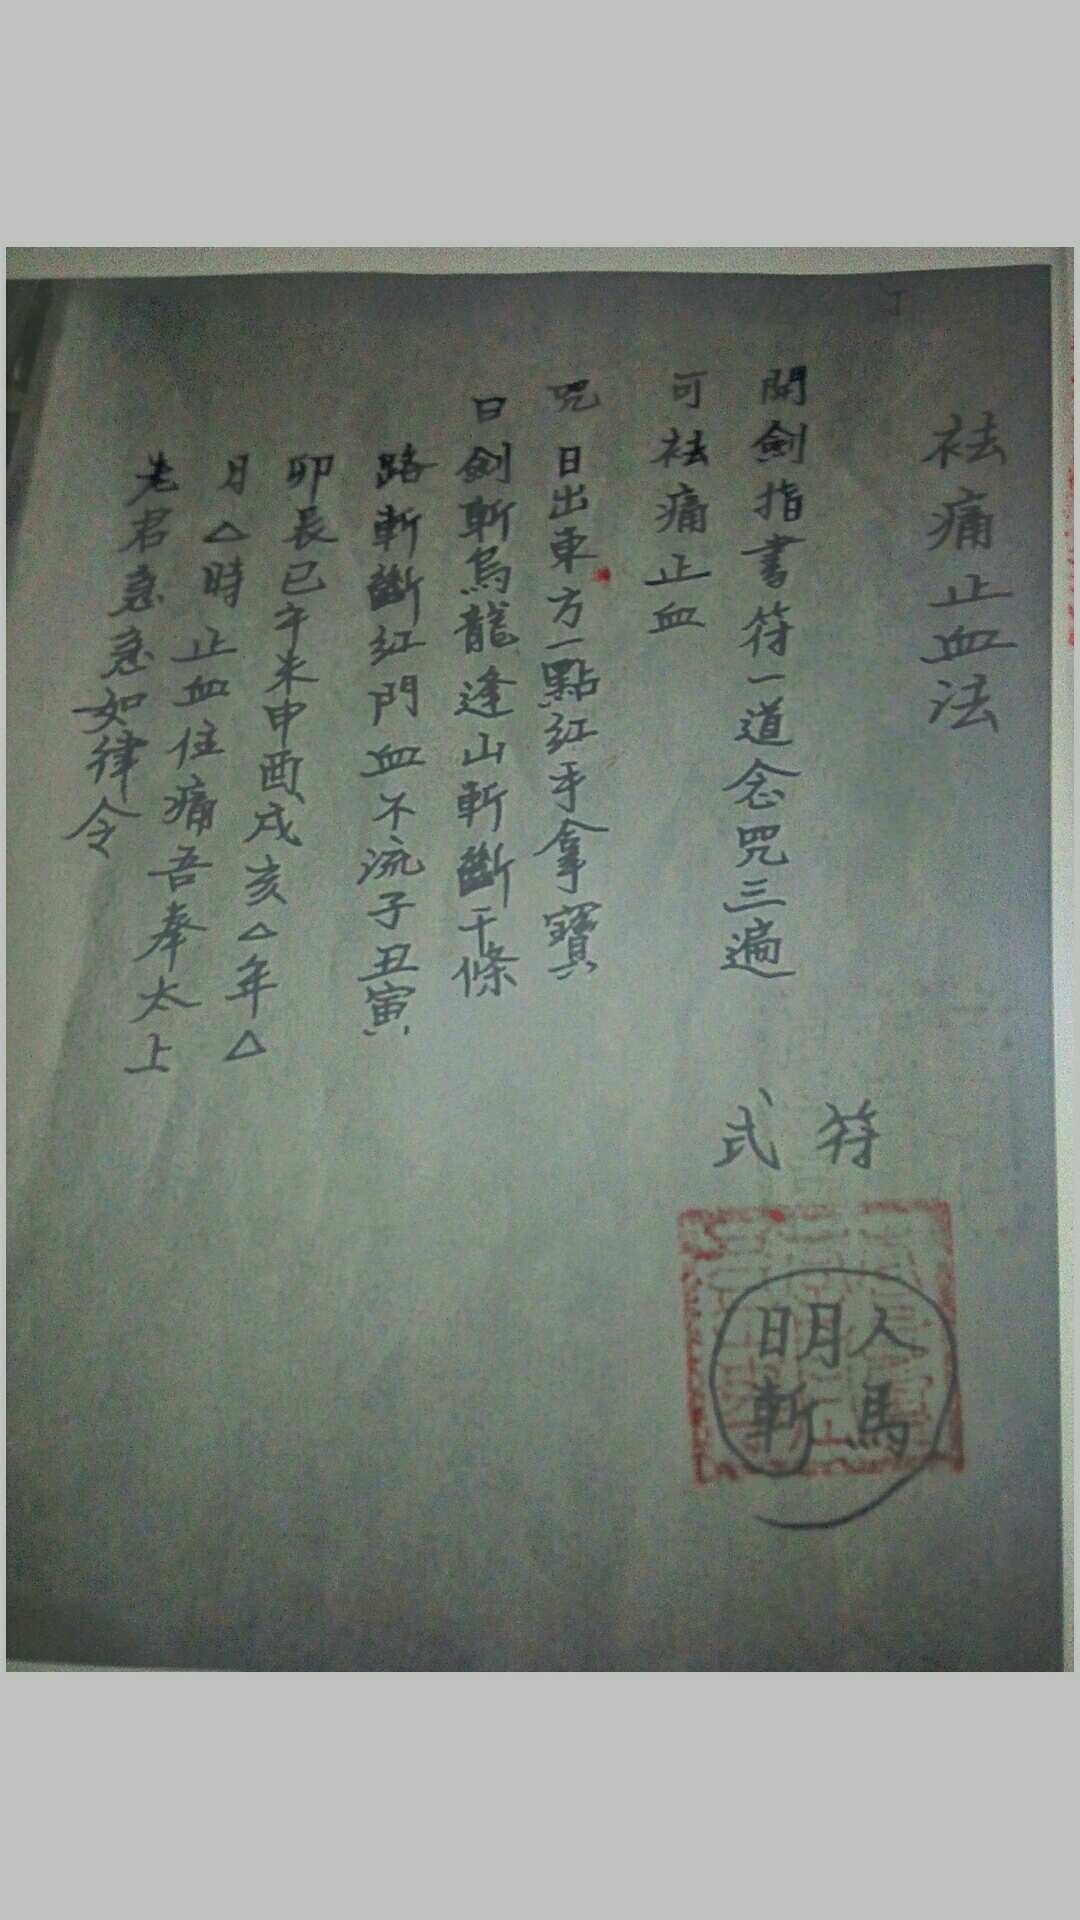 祛痛止血法
開劍指書符一道念咒三遍
可祛痛止血
咒 日出東方一點紅手拿寶
曰 劍斬烏龍逢山斬斷千條
路斬斷紅門血不流子丑寅
卯辰巳午未申酉戌亥△年△
月△時止血住痛吾奉太上
老君急急如律令
符式
日月人
斬馬